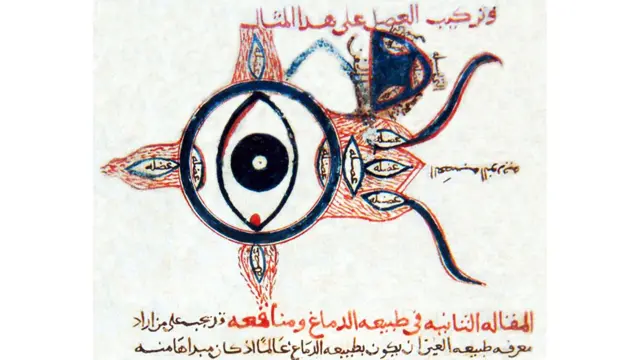 وتركيب العضل على هذا المثال
عضله
عضله
عضله
عضله
عضله
عضله
العصبه النوريه
المقاله الثانيه في طبيعه الدماغ ومنافعه وقد يجب على من اراد
معرفه طبيعه العين ان يكون بطبيعه الدماغ عالما اذ كان مبداها منه